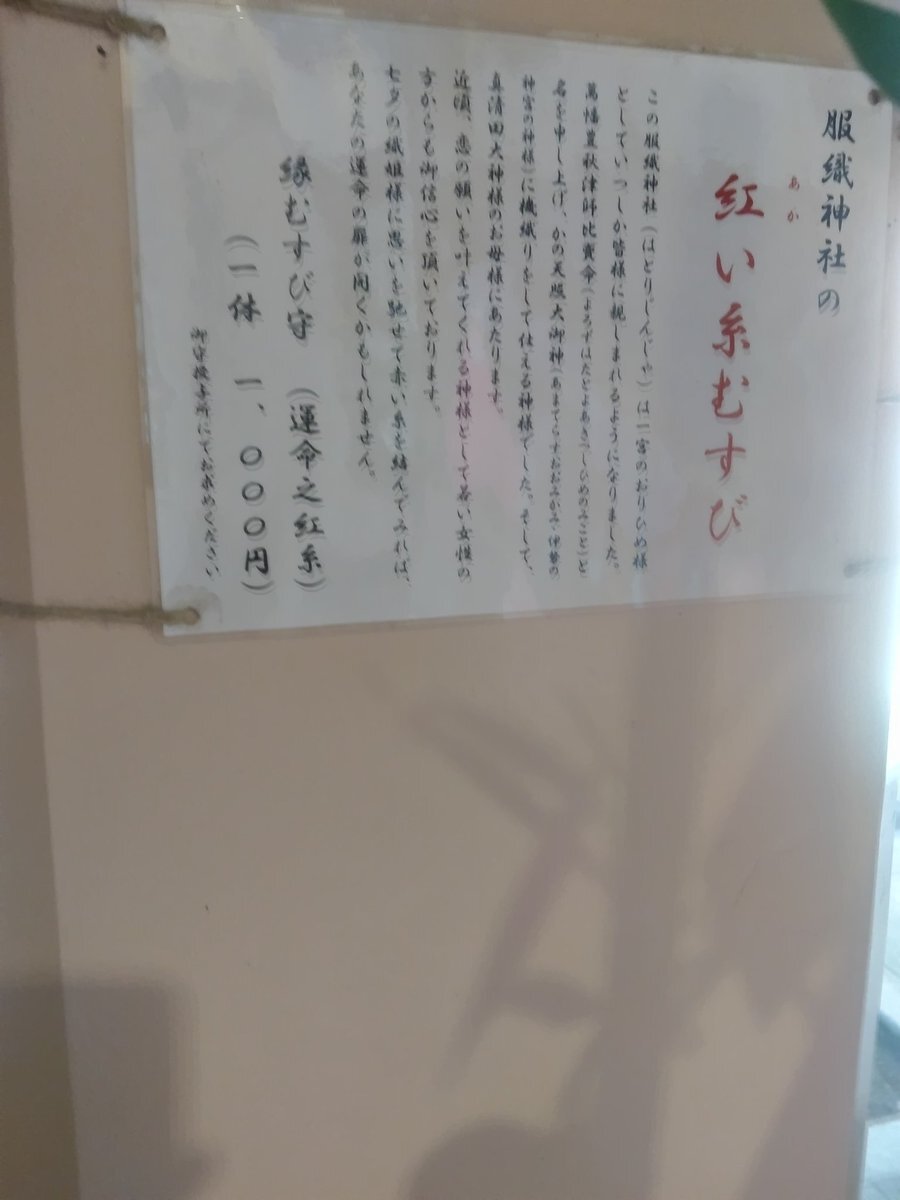 服織神社の
紅い糸むすび
あか
この服織神社（はとりじんじゃ）は一宮のおりひめ様
としていつしか皆様に親しまれるようになりました。
萬幡豊秋津師比賣命（よろずはたとよあきつしひめのみこと）と
名を申し上げ、かの天照大御神（あまてらすおおみかみ・伊勢の
神宮の神様）に機織りをして仕える神様でした。そして、
真清田大神様のお母様にあたります。
近頃、恋の願いを叶えてくれる神様として若い女性の
方からも御信心を頂いております。
七夕の織姫様に思いを馳せて赤い糸を結んでみれば、
あなたの運命の扉が開くかもしれません。
縁むすび守　（運命之紅糸）
（一体　一、〇〇〇円）
御守授与所にてお求めください